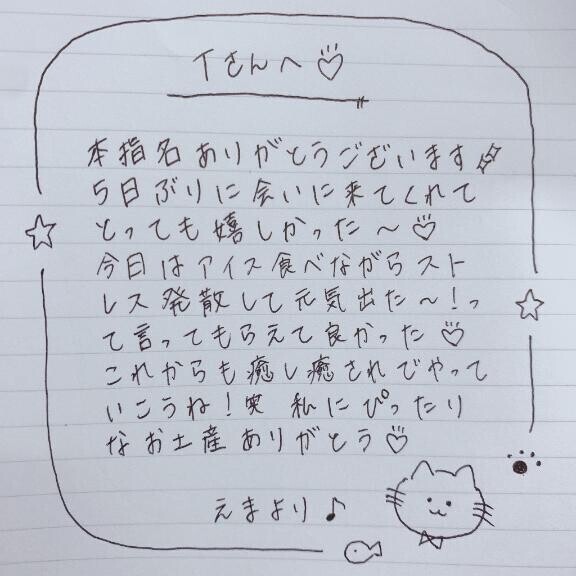 Tさんへ♡
本指名ありがとうございます
5日ぶりに会いに来てくれて
とっても嬉しかった〜♡
今日はアイス食べながらスト
レス発散して元気出た〜!っ
て言ってもらえて良かった♡
これからも癒し癒されでやって
いこうね!笑 私にぴったり
なお土産ありがとう♡
えまより♪